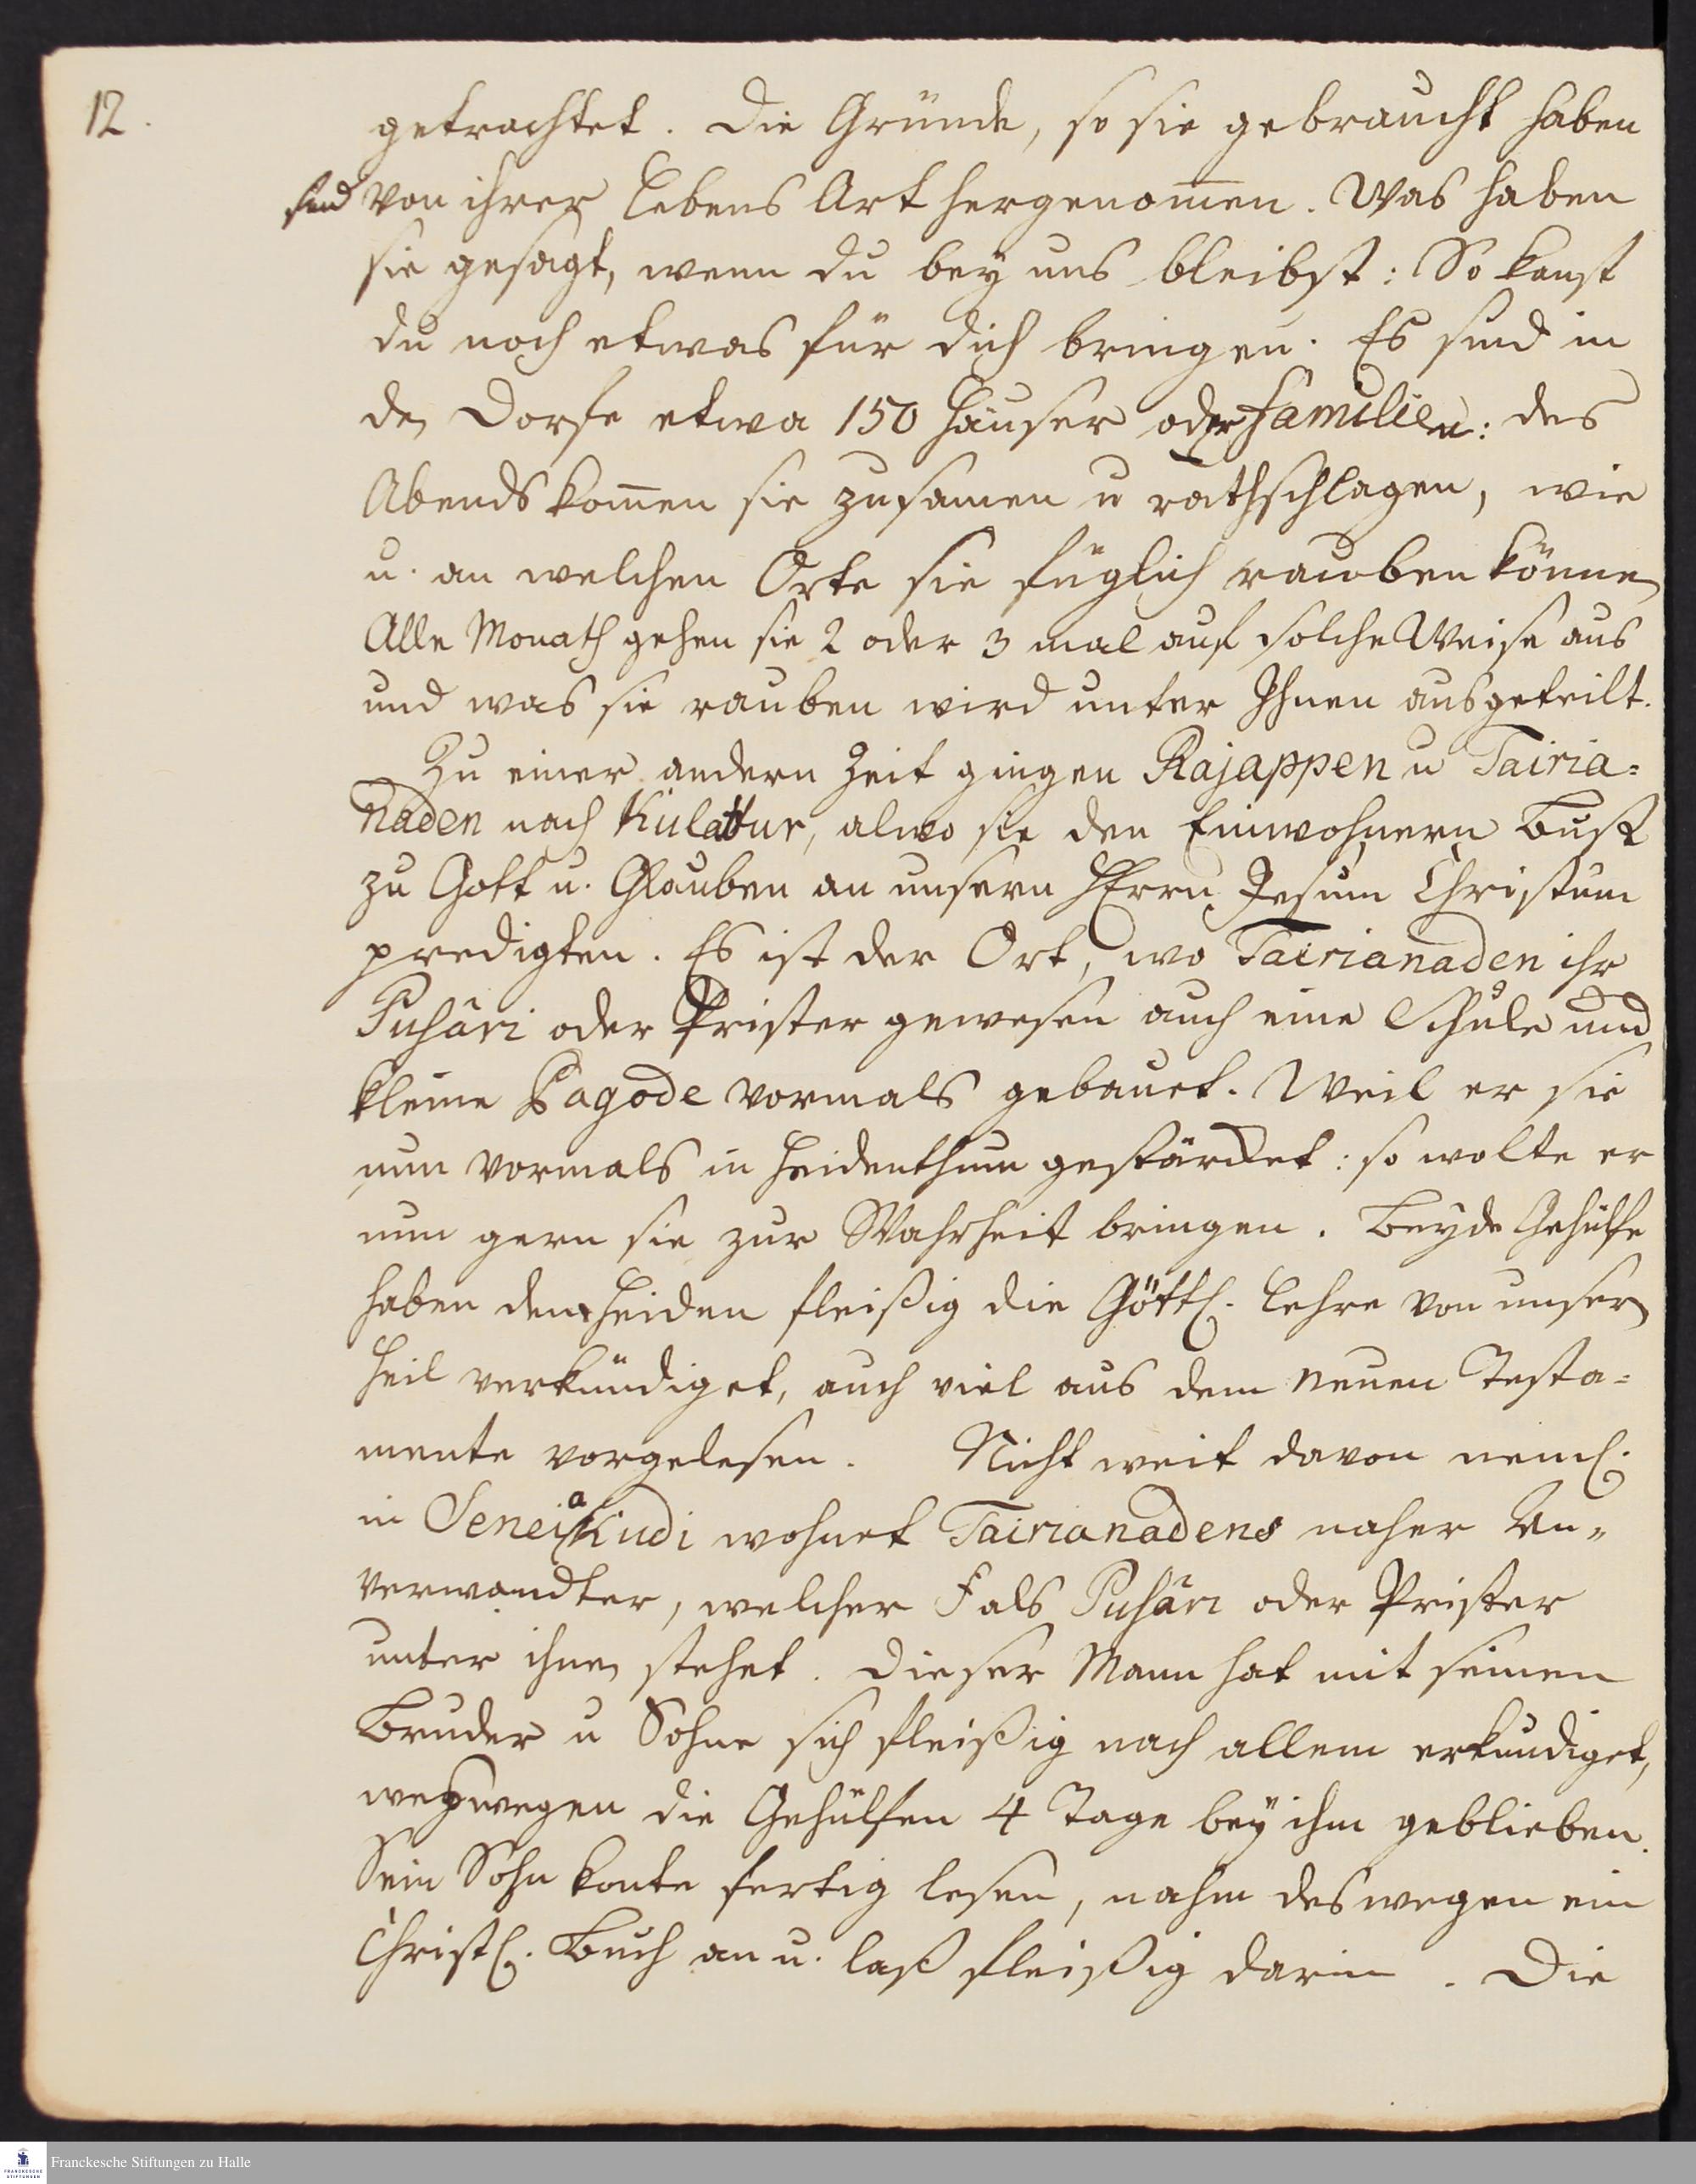 12.
getrachtet. Die Gründe, so sie gebraucht haben
sind von ihrer Lebens Art hergenom̄en. Was haben
sie gesagt, wenn du bey uns bleibst: So kanst
du noch etwas für dich bringen. Es sind in
den Dorfe etwa 150 Häuser oder Familien: des
Abends kom̄en sie zusamen u rathschlagen, wie
u. an welchen Orte sie füglich rauben können
Alle Monath gehen sie 2 oder 3 mal auf solche Weise aus
und was sie rauben wird unter Ihnen ausgeteilt.
Zu einer andern Zeit gingen Rajappen u Tairia=
naden nach Kulattur, alwo sie den Einwohnern Buß
zu Gott u. Glauben an unsern HErrn Jesum Christum
predigten. Es ist der Ort, wo Tairianaden ihr
Pusâri oder Prister gewesen auch eine Schule und
kleine Pagode vormals gebauet. Weil er sie
nun vormals in Heidenthum gestärcket: so wolte er
nun gern sie zur Wahrheit bringen. Beyde Gehülfe
haben den Heiden fleißig die Göttl. Lehre von unsern
Heil verkündiget, auch viel aus dem Neuen Testa=
mente vorgelesen. Nicht weit davon neml.
in Seneiakudi wohnet Tairianadens naher An=
verwandter, welcher als Pusâri oder Prister
unter ihnen stehet. Dieser Mann hat mit seinen
Bruder u Sohne sich fleißig nach allem erkundiget,
weßwegen die Gehülfen 4 Tage bey ihm geblieben.
Sein Sohn konte fertig lesen, nahm deswegen ein
Christl. Buch an u. laß fleißig darin. Die
Franckesche Stiftungen zu Halle
FRANCKESCHE
STIFTUNGEN